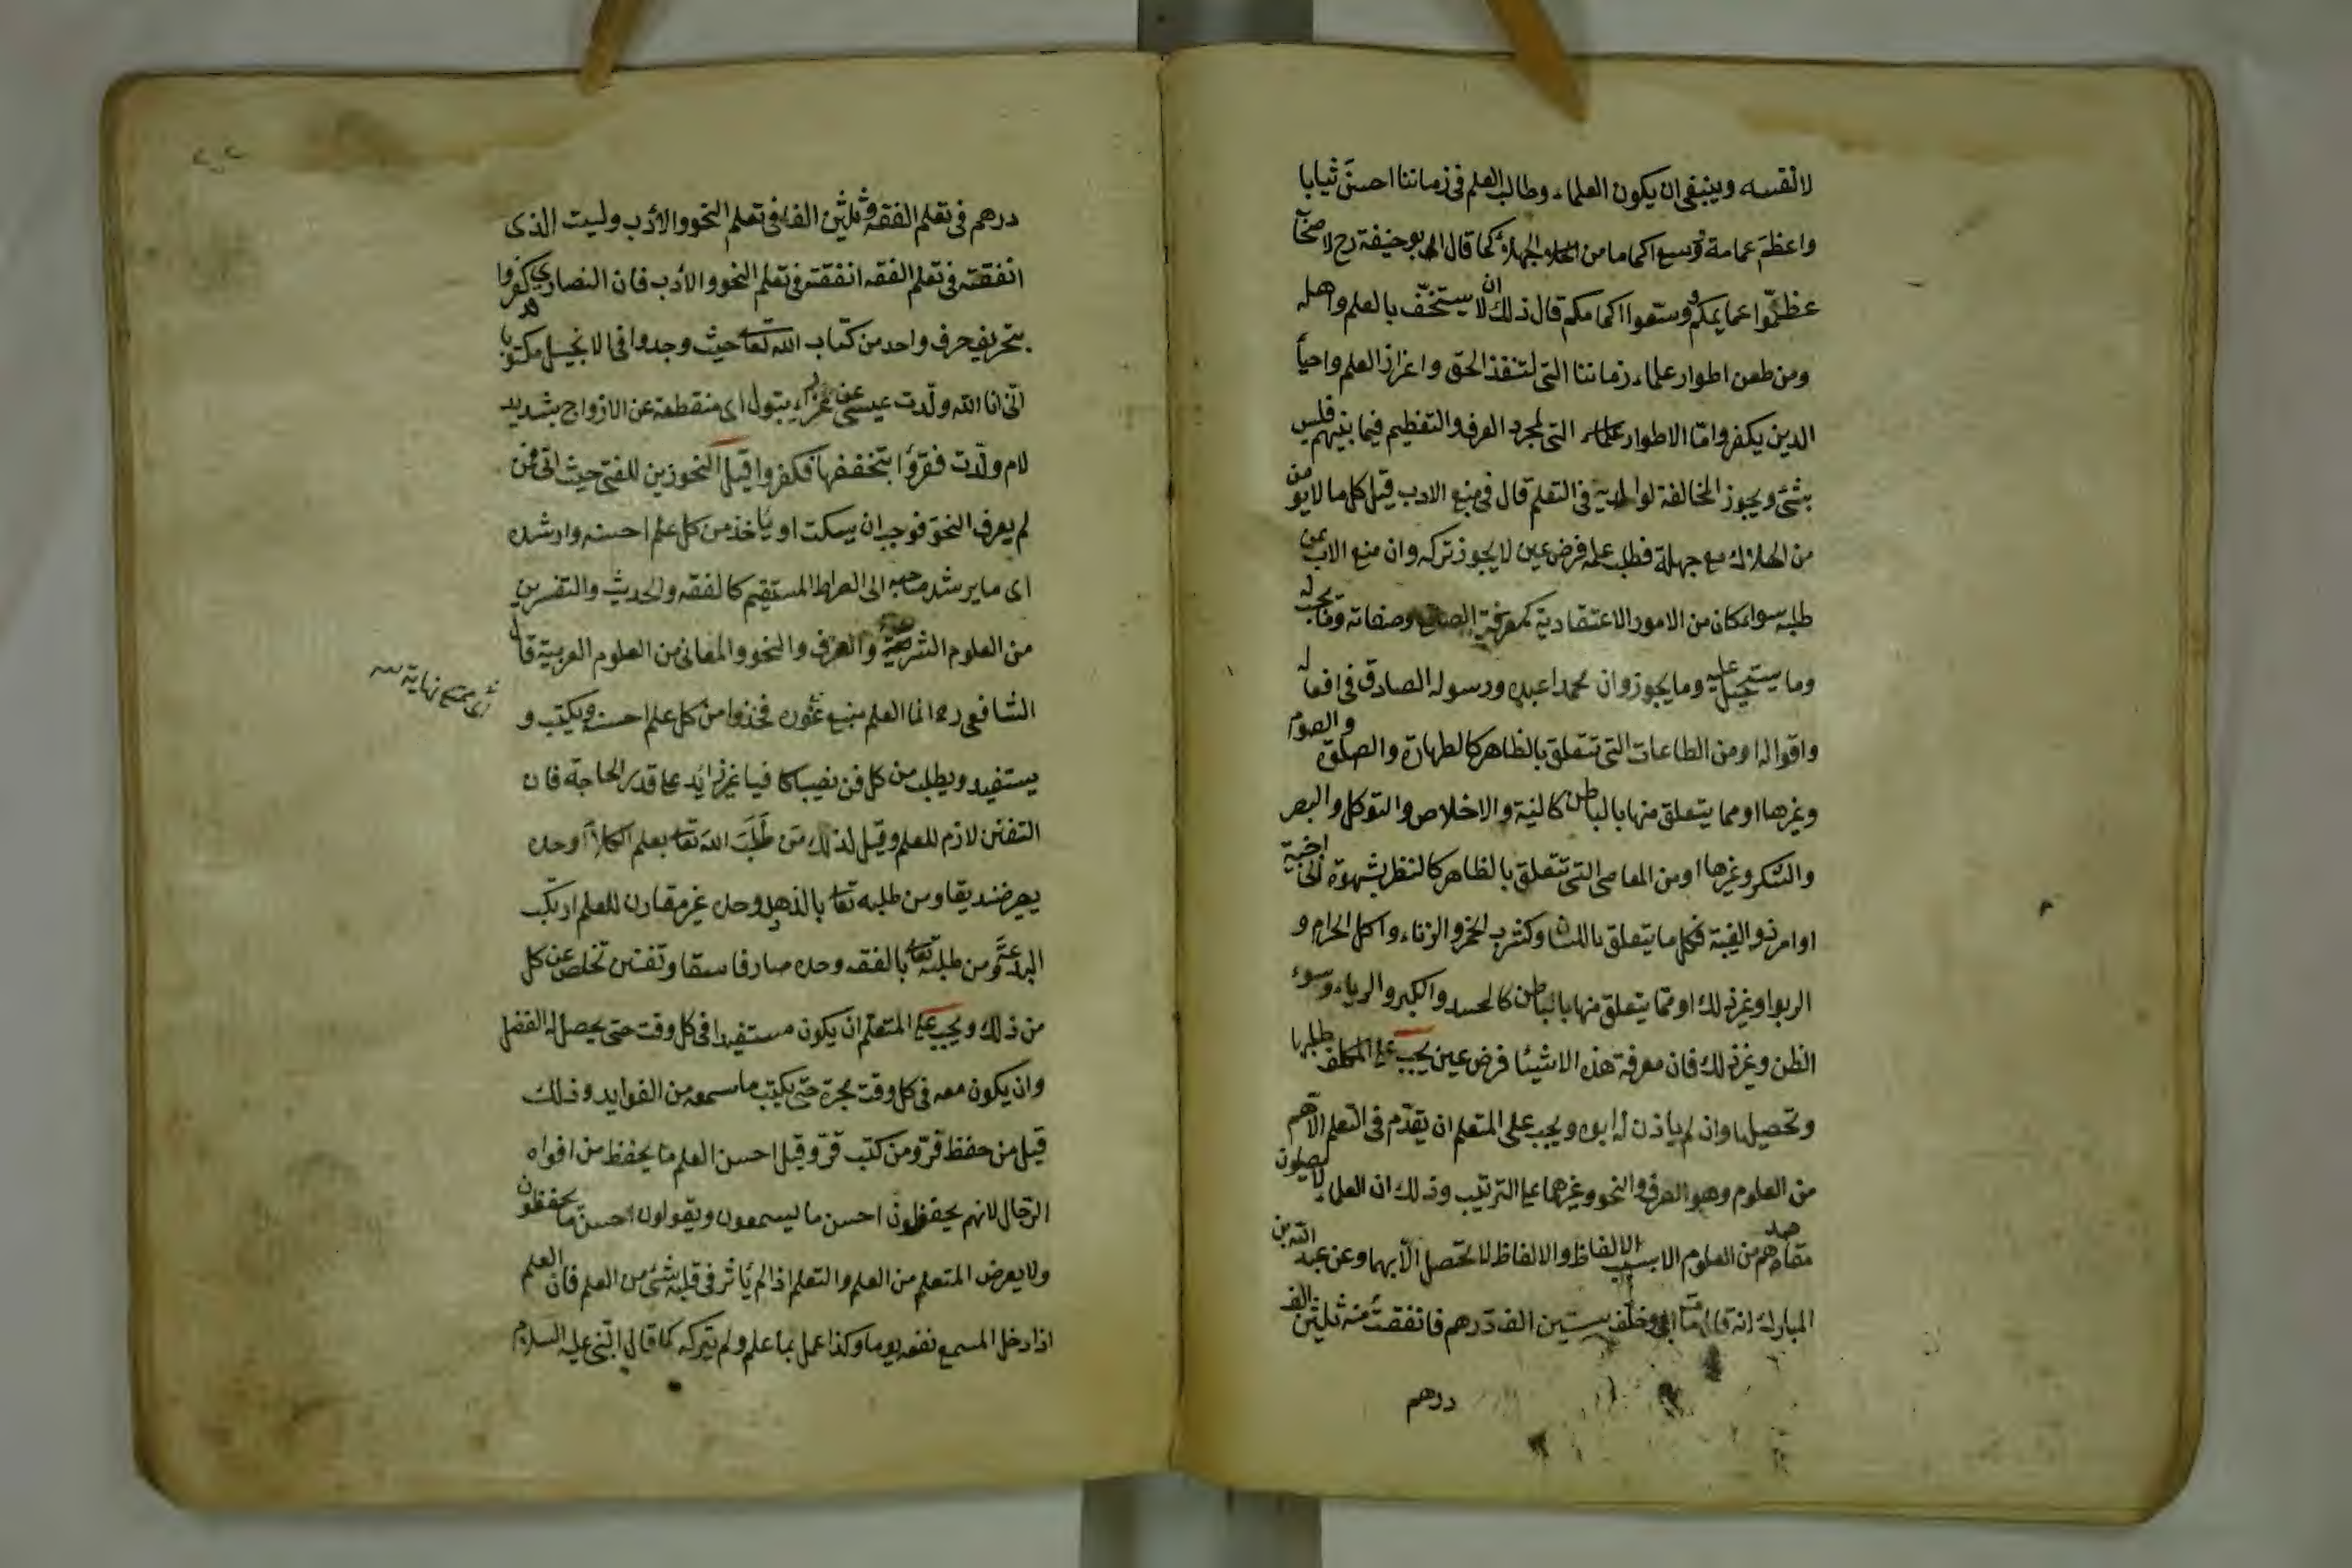 لانفسه وينبغي ان يكون العلماء وطالب العلم في زماننا احسن ثيابا
واعظم عمامة واوسع اكماما من الجهلاء كما قال ابو حنيفة رح لاصحا
عظموا عمايمكم ووسعوا اكمامكم قال ذلك لان لا يستخف بالعلم واهله
ومن طعن اطوار علماء زماننا التي لتنفذ الحق واعزاز العلم واحيأ
الدين يكفر واما الاطوار التي لمجرد العرف والتعظيم فيما بينهم فليس
بشئ ويجوز المخالفة لوالديه في التعلم قال في منبع الادب قيل كل ما لا يؤمن
من الهلاك مع جهله فطلب علمه فرض عين لا يجوز تركه وان منع الاب عن
طلبه سواء كان من الامور الاعتقادية كمعرفة الصانع وصفاته وما يجب له
وما يستحيل عليه وما يجوز وان محمدا عبده ورسوله الصادق في افعاله
واقواله او من الطاعات التي تتعلق بالظاهر كالطهارة والصلوة والصوم
وغيرها او مما يتعلق منها بالباطن كالنية والاخلاص والتوكل والبصر
والشكر وغيرها او من المعاصي التي تتعلق بالظاهر كالنظر بشهوة الى اجنبية
او امرد والغيبة فكل ما يتعلق باللسان وكشرب الخمر والزناء واكل الحرام و
الربوا وغير ذلك او مما يتعلق منها بالباطن كالحسد والكبر والرياء وسوء
الظن وغير ذلك فان معرفة هذه الاشيئا فرض عين يجب على المكلف طلبها
وتحصيلها وان لم ياذن له ابوه ويجب على المتعلم ان يقدم في التعلم الاهم
من العلوم وهو الصرف والنحو وغيرهما على الترتيب وذلك ان العلماء لا يصلون
مقاصدهم من العلوم الا بسبب الالفاظ والالفاظ لا تحصل الا بهما وعن عبد الله بن
المبارك انه قال مات ابي وخلف ستين الف درهم فانفقت منه ثلثين الف
درهم
درهم في تعلم الفقه وثلثين الفا في تعلم النحو والادب وليت الذي
انفقته في تعلم الفقه انفقته في تعلم النحو والادب فان النصارى كفروا
بتحريف حرف واحد من كتاب الله تعالى حيث وجدوا في الانجيل مكتوبا
اني انا الله ولّدت عيسى بتول اى منقطعة عن الازواج بتشديد
لام ولّدت فقرؤا بتخفيفها فكفروا قيل النحو زين للفتى حيث اتى فمن
لم يعرف النحو فوجب ان يسكت او يأخذ من كل علم احسنه وارشده
اى ما يرشد صاحبه الى الصراط المستقيم كالفقه والحديث والتفسير
من العلوم الشرعية والصرف والنحو والمعاني من العلوم العربية قال
الشافعي رح انما العلم منبع غوره فخذوا من كل علم احسنه ويكتب و
يستفيد ويطلب من كل فن نصيبا كافيا غير زائد على قدر الحاجة فان
التفنن لازم للعلم وقيل لذلك من طلب الله تعالى بعلم الكلام وحده
يصير ضنديقا ومن طلبه تعالى بالذهد وحده غير مقارن للعلم ارتكب
البدعة ومن طلبه تعالى بالفقه وحده صار فاسقا وتفنن تخلص عن كل
من ذلك ويجب على المتعلم ان يكون مستفيدا في كل وقت حتى يحصل له الفضل
وان يكون معه في كل وقت محبرة حتى يكتب ما سمعه من الفوايد وذلك
قيل من حفظ فرّ ومن كتب قرّ وقيل احسن العلم ما يحفظ من افواه
الرجال لانهم يحفظون احسن ما يسمعون ويقولون احسن ما يحفظون
ولا يعرض المتعلم من العلم والتعلم اذا لم يأثر في قلبه شئ من العلم فان العلم
اذا دخل المسمع نفعه يوما وكذا عمل بما علم ولم يتركه كما قال النبي عليه السلام